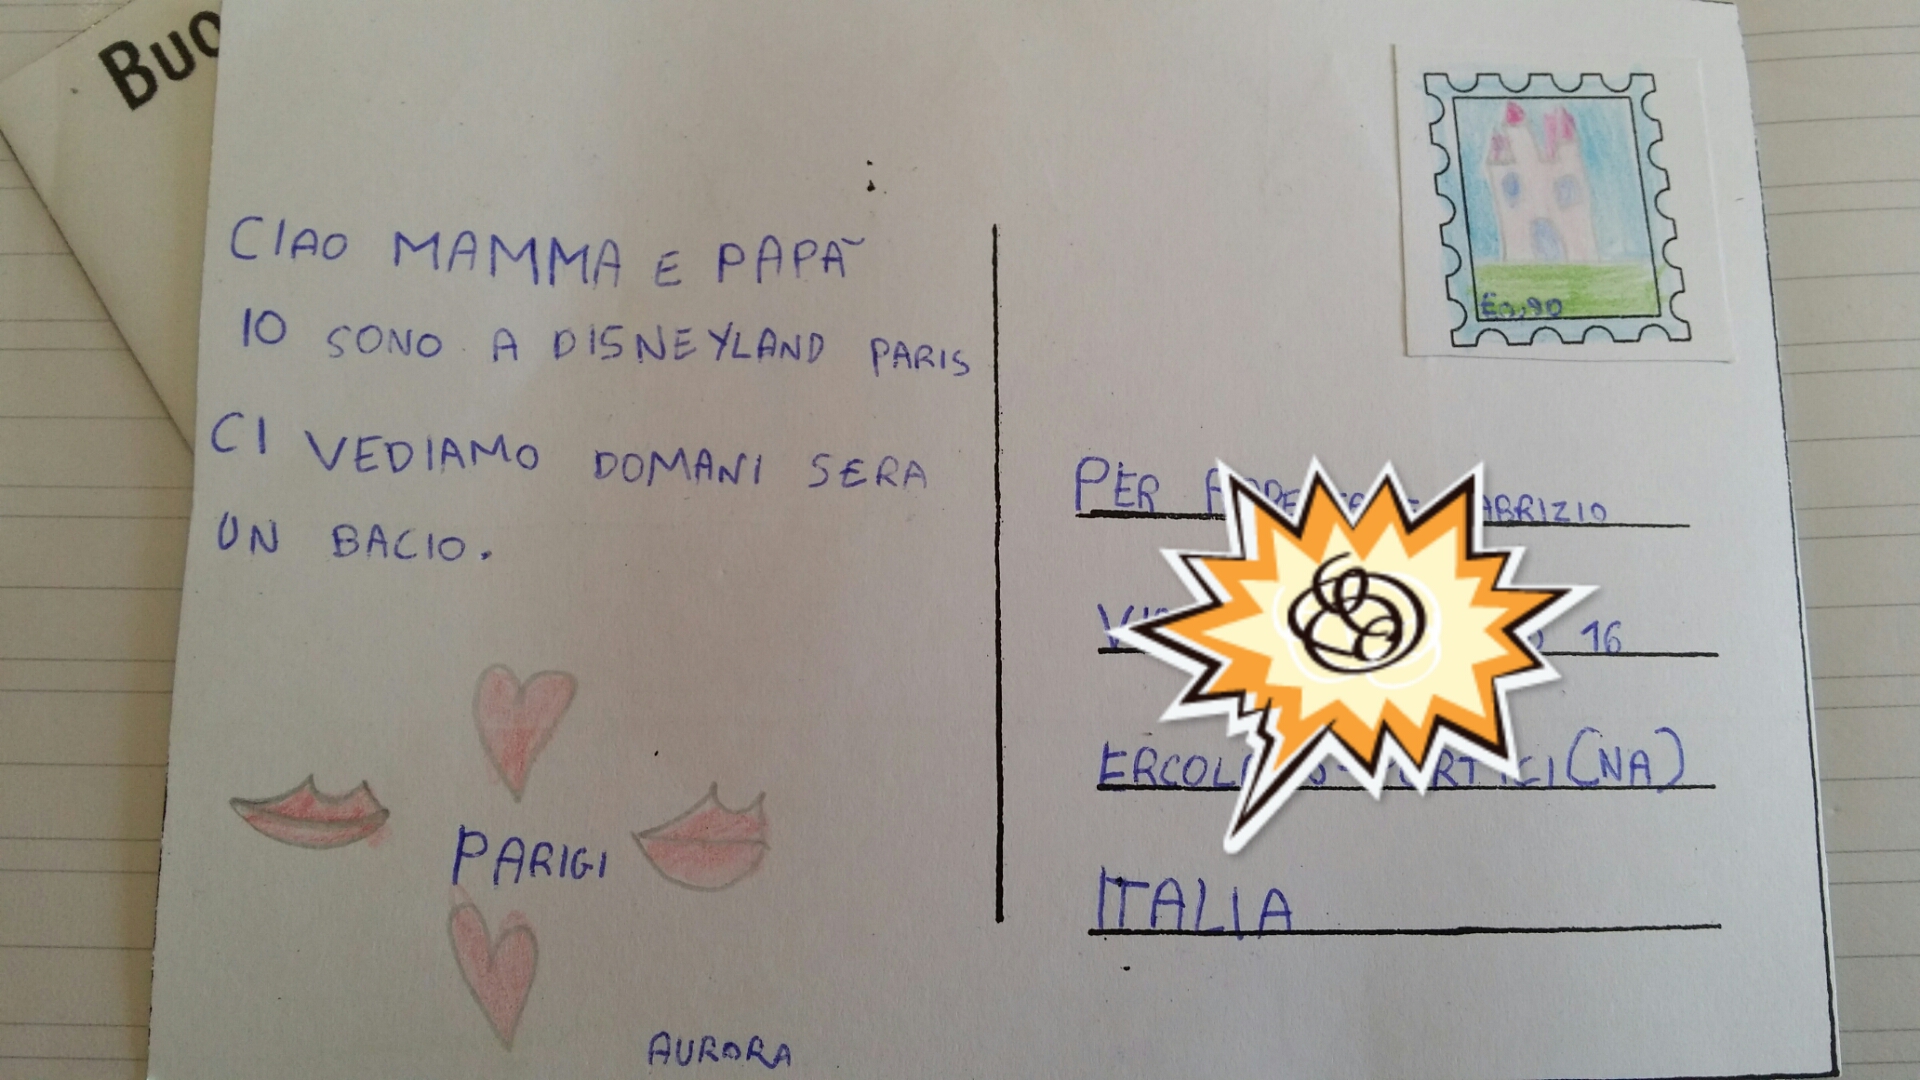 BUO
CIAO MAMMA E PAPÀ
IO SONO A DISNEYLAND PARIS
CI VEDIAMO DOMANI SERA
UN BACIO.
PARIGI
AURORA
€0,90
PER
16
(NA)
ITALIA